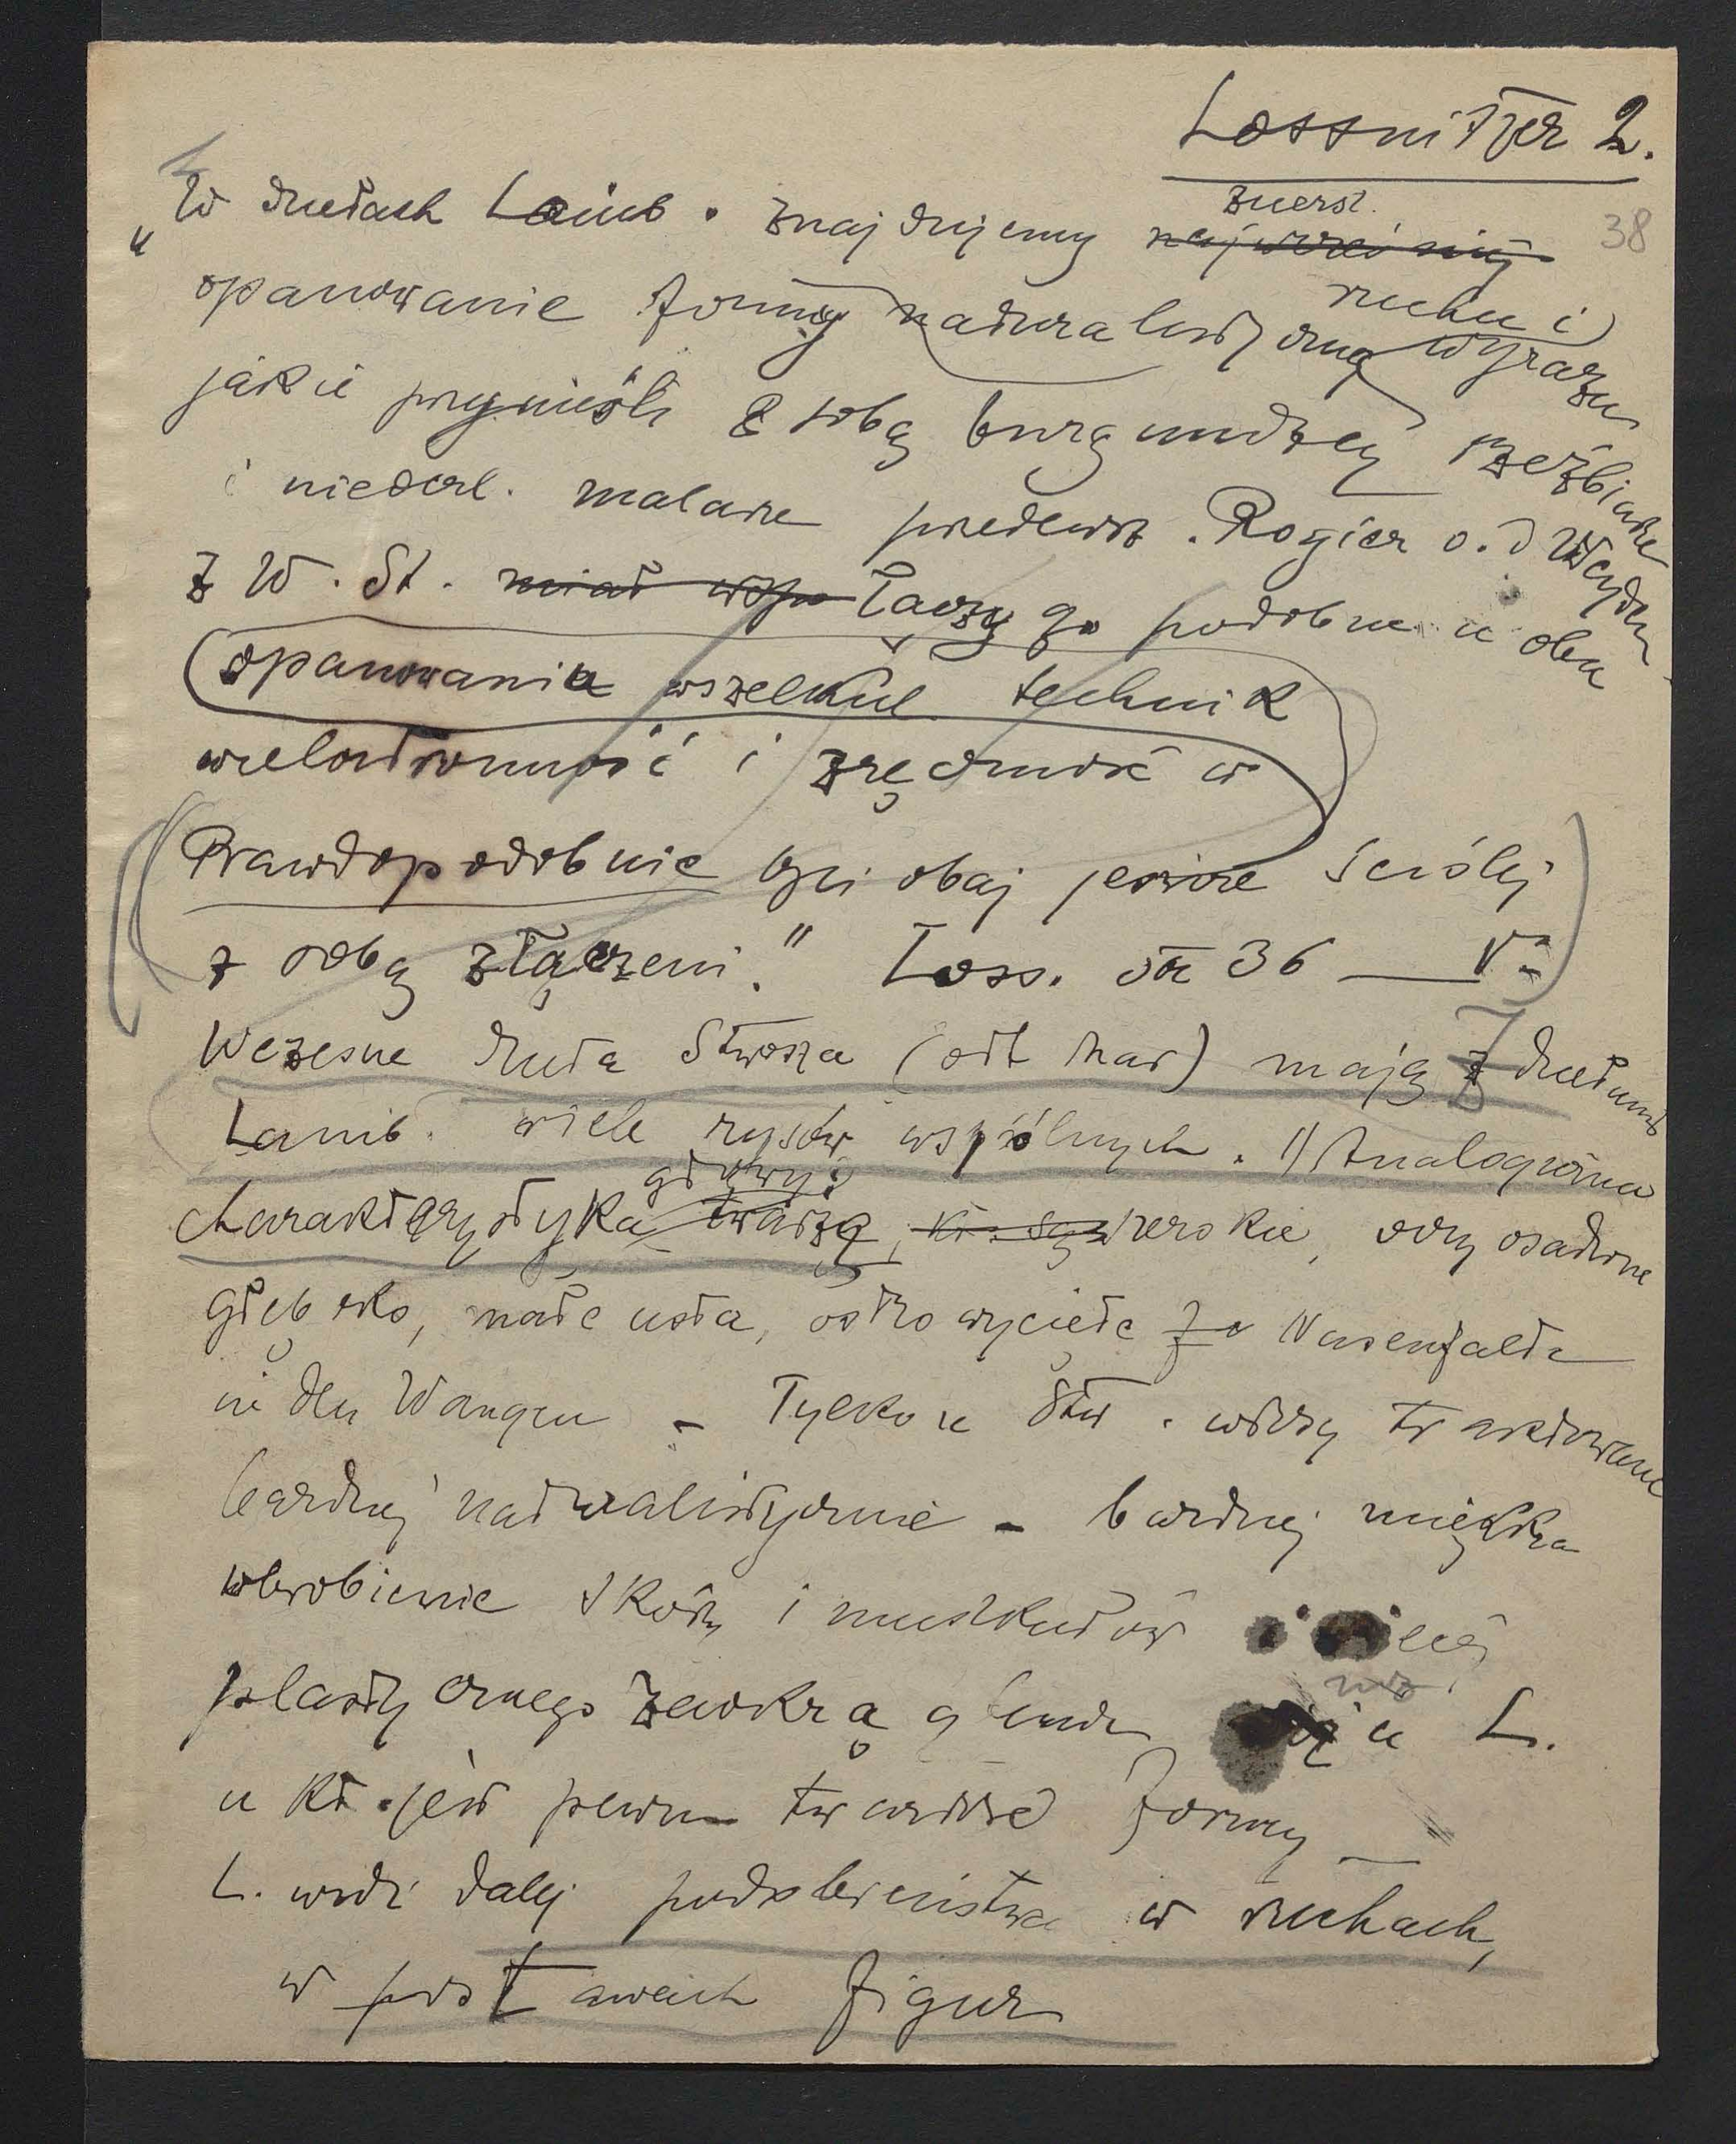 Lossnitzer 2.
38
"W dziełach Laimb. znajdujemy najwcześniej zuerst.
opanowanie formy naturalistyczną ruchu i wyrazu
jakie przynieśli z sobą burgundzcy rzeźbiarze
i niederl. malarze przedewsz. Rogier v. d Weyden
Z W. St. miał wsp łączy go podobne u obu
opanowania wszelkich technik
wielostronność i zręczność w
Prawdopodobnie byli obaj jeszcze ściślej
z sobą złączeni." Loss. str 36 —
Wczesne dzieła Stwosza (ołt Mar) mają z dziełami
Lamb. wiele rysów wspólnych. 1) Analogiczna
charakterystyka twarzy głowy: szerokie, oczy osadzone
głęboko, małe usta, ostro wycięte Nasenfalte
in den Wangen – Tylko u Stw. włosy traktowane
bardziej naturalistycznie – bardziej miękka
wyrobienie skóry i muskułów i więcej
plastycznego zaokrąglenia niż u L.
u kt. jest pewna twardość formy —
L. widzi dalej podobieństwa w ruchach,
w postawach figur